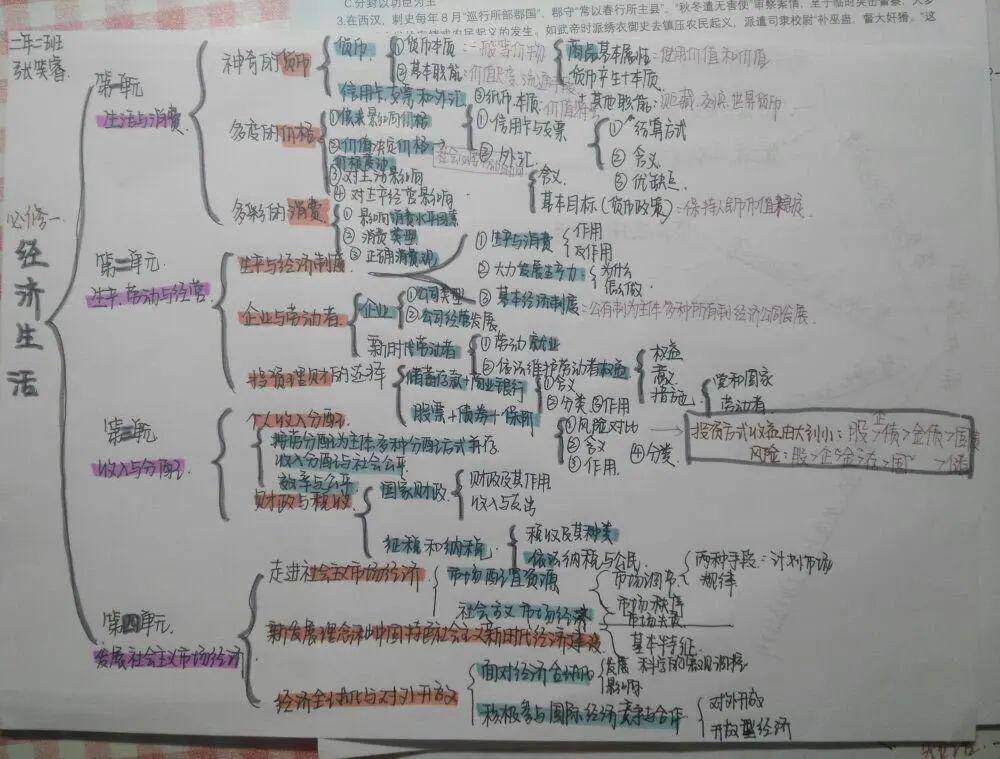 C.分封以功臣为主
3.在西汉，刺史每年8月“巡行所部郡国”，郡守“常以春行所主县”，“秋冬遣无害
农民起义的发生。如武帝时派绣衣御史去镇压农民起义，派遣司隶校尉“补巫蛊，督大奸猾。”这
二年二班
张笑睿
必修一
经济生活
第一单元
生活与消费
神奇的货币
货币
①货币本质：一般等价物
②基本职能：价值尺度、流通手段
商品基本属性：使用价值和价值
货币产生+本质
③纸币
其他职能：贮藏、支付、世界货币
信用卡、支票和外汇
①信用卡与支票
①结算方式
②含义
③优缺点
②外汇
含义
基本目标（货币政策）：保持人民币币值稳定
多变的价格
①供求影响价格
②价值决定价格
③对生活影响
④对生产经营影响
多彩的消费
①影响消费水平因素
②消费类型
③正确消费观
第二单元
生产、劳动与经营
生产与经济制度
①生产与消费
作用
反作用
②大力发展生产力
为什么
怎么做
③基本经济制度：公有制为主体多种所有制经济共同发展
企业与劳动者
企业
①公司类型
②公司经营发展
新时代劳动者
①劳动就业
②依法维护劳动者权益
权益
意义
措施
党和国家
劳动者
投资理财的选择
储蓄存款+商业银行
①含义
②分类 ③作用
股票+债券+保险
①风险对比
②含义
③作用
④分类
投资方式收益由大到小：股>企债>金债>国债
风险：股>企>金债>国>储
第三单元
收入与分配
个人收入分配
按劳分配为主体多种分配方式并存
收入分配与社会公平
效率与公平
财政与税收
国家财政
财政及其作用
收入与支出
征税和纳税
税收及其种类
依法纳税与公民
第四单元
发展社会主义市场经济
走进社会主义市场经济
市场配置资源
市场调节
两种手段：计划市场
规律
市场秩序
市场失灵
社会主义市场经济
基本特征
科学的宏观调控
新发展理念和中国特色社会主义新时代经济建设
经济全球化与对外开放
面对经济全球化
发展
影响
积极参与国际经济竞争与合作
对外开放
开放型经济